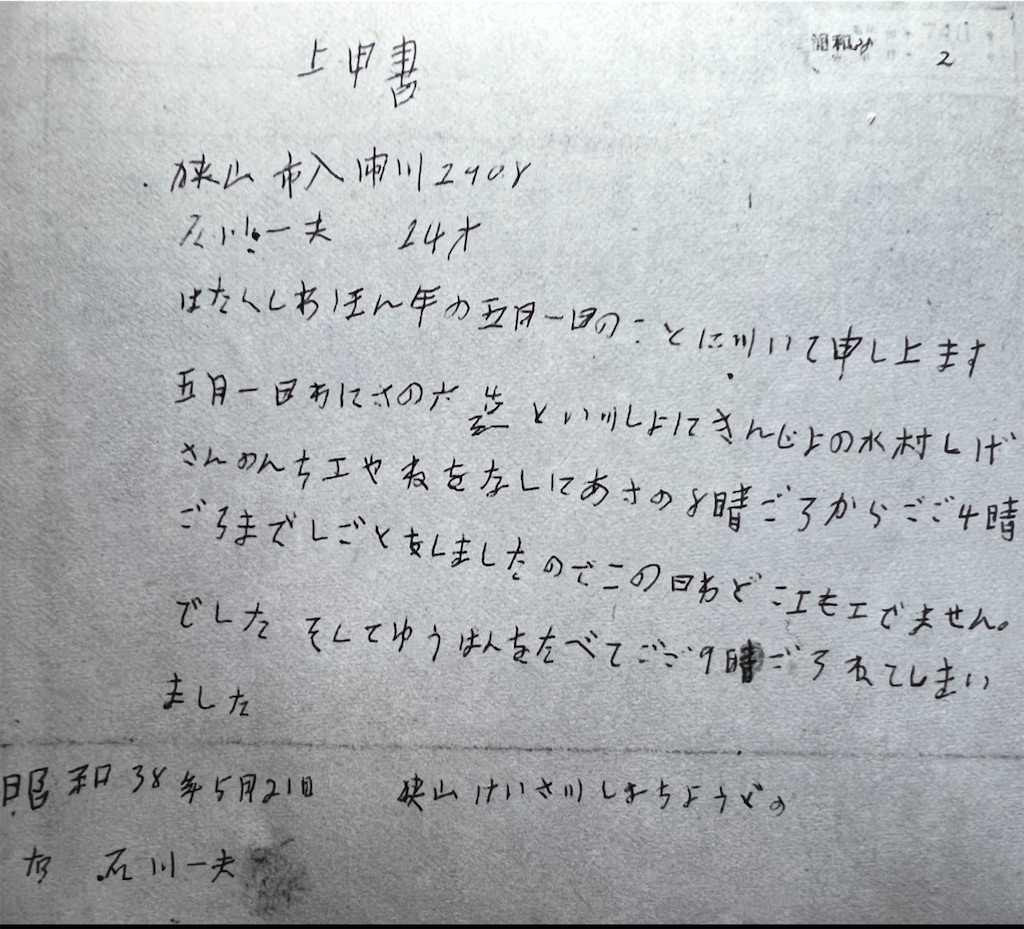 2
上申書
狭山市入間川2908
石川一夫 24才
はたくしわほん年の五月一日のことに川いて申し上ます
五月一日わにさの六造といツしよにきんじよの水村しげ
さんのんちエやねをなしにあさの8時ごろからごご4時
ごろまでしごとをしましたのでこの日わどこエもエでません。
でした そしてゆうはんをたべてごご9時ごろねてしまい
ました
昭和38年5月21日 狭山けいさツしよちょうどの
右 石川一夫